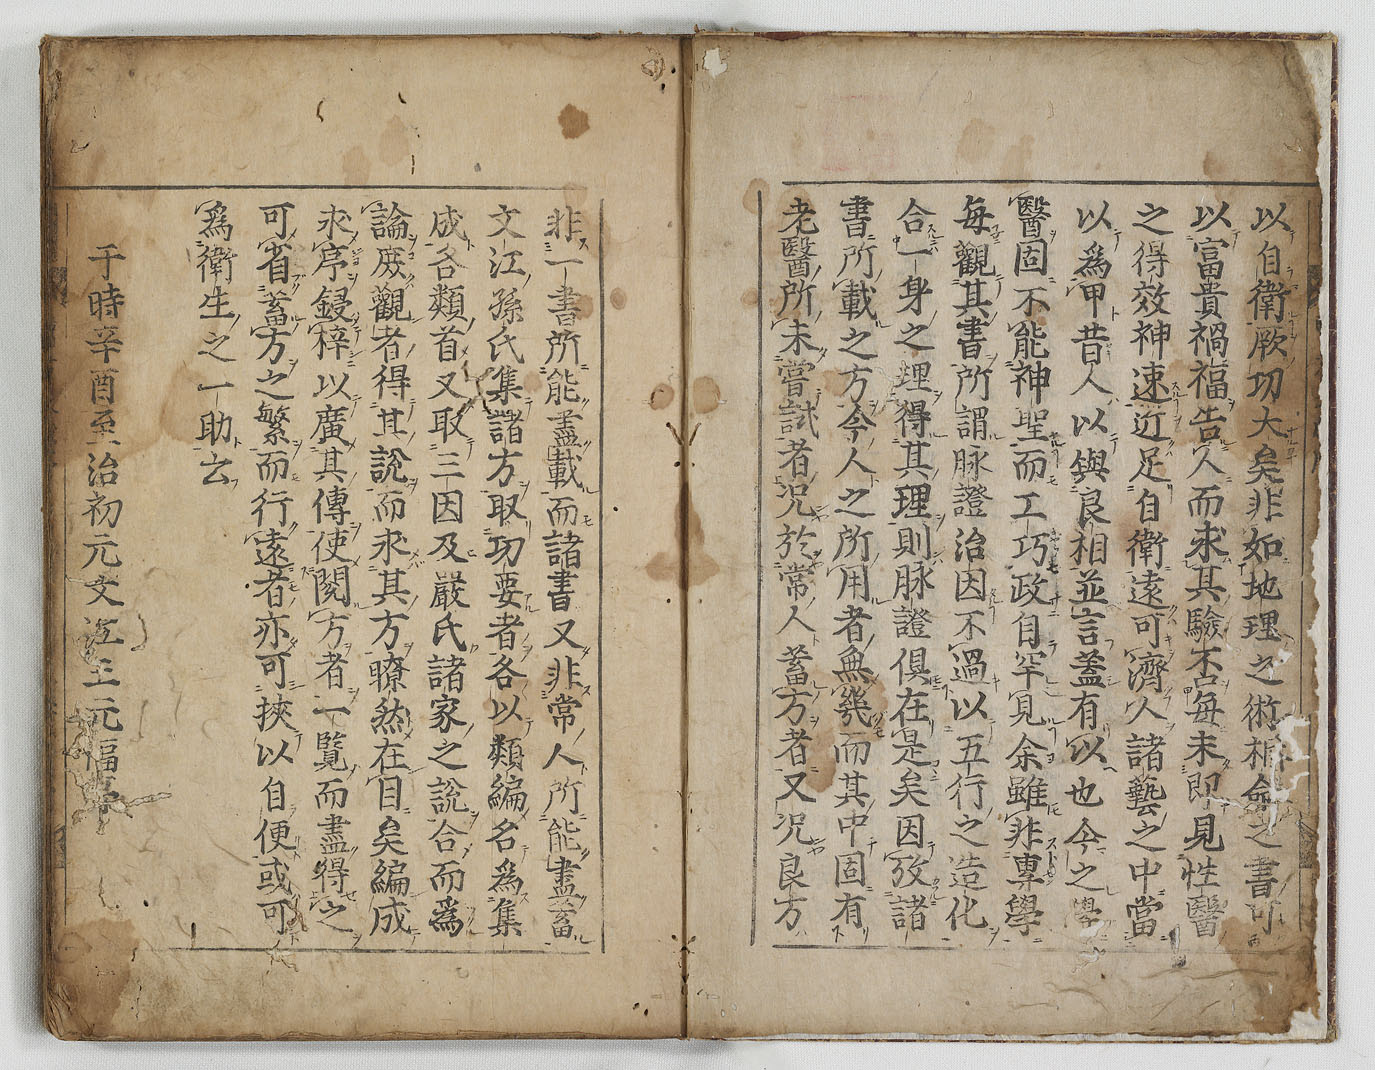 以自衛厥功大矣非如地理之術相命之書可
以富貴禍福告人而求其驗否每未即見惟醫
之得效神速近足自衛遠可濟人諸藝之中當
以爲甲昔人以與良相並言蓋有以也今之學
醫固不能神聖而工巧政自罕見余雖非專學
每觀其書所謂脉證治因不過以五行之造化
合一身之理得其理則脉證俱在是矣因攷諸
書所載之方今人之所用者無幾而其中固有
老醫所未嘗試者况於常人蓄方者又况良方
非一書所能盡載而諸書又非常人所能盡蓄
文江孫氏集諸方取功要者各以類編名爲集
成各類首又取三因及嚴氏諸家之說合而爲
論庶觀者得其說而求其方瞭然在目矣編成
求序鋟梓以廣其傳使閱方者一覽而盡得之
可省蓄方之繁而行遠者亦可挾以自便或可
爲衛生之一助云
于時辛酉至治初元文江王元福序